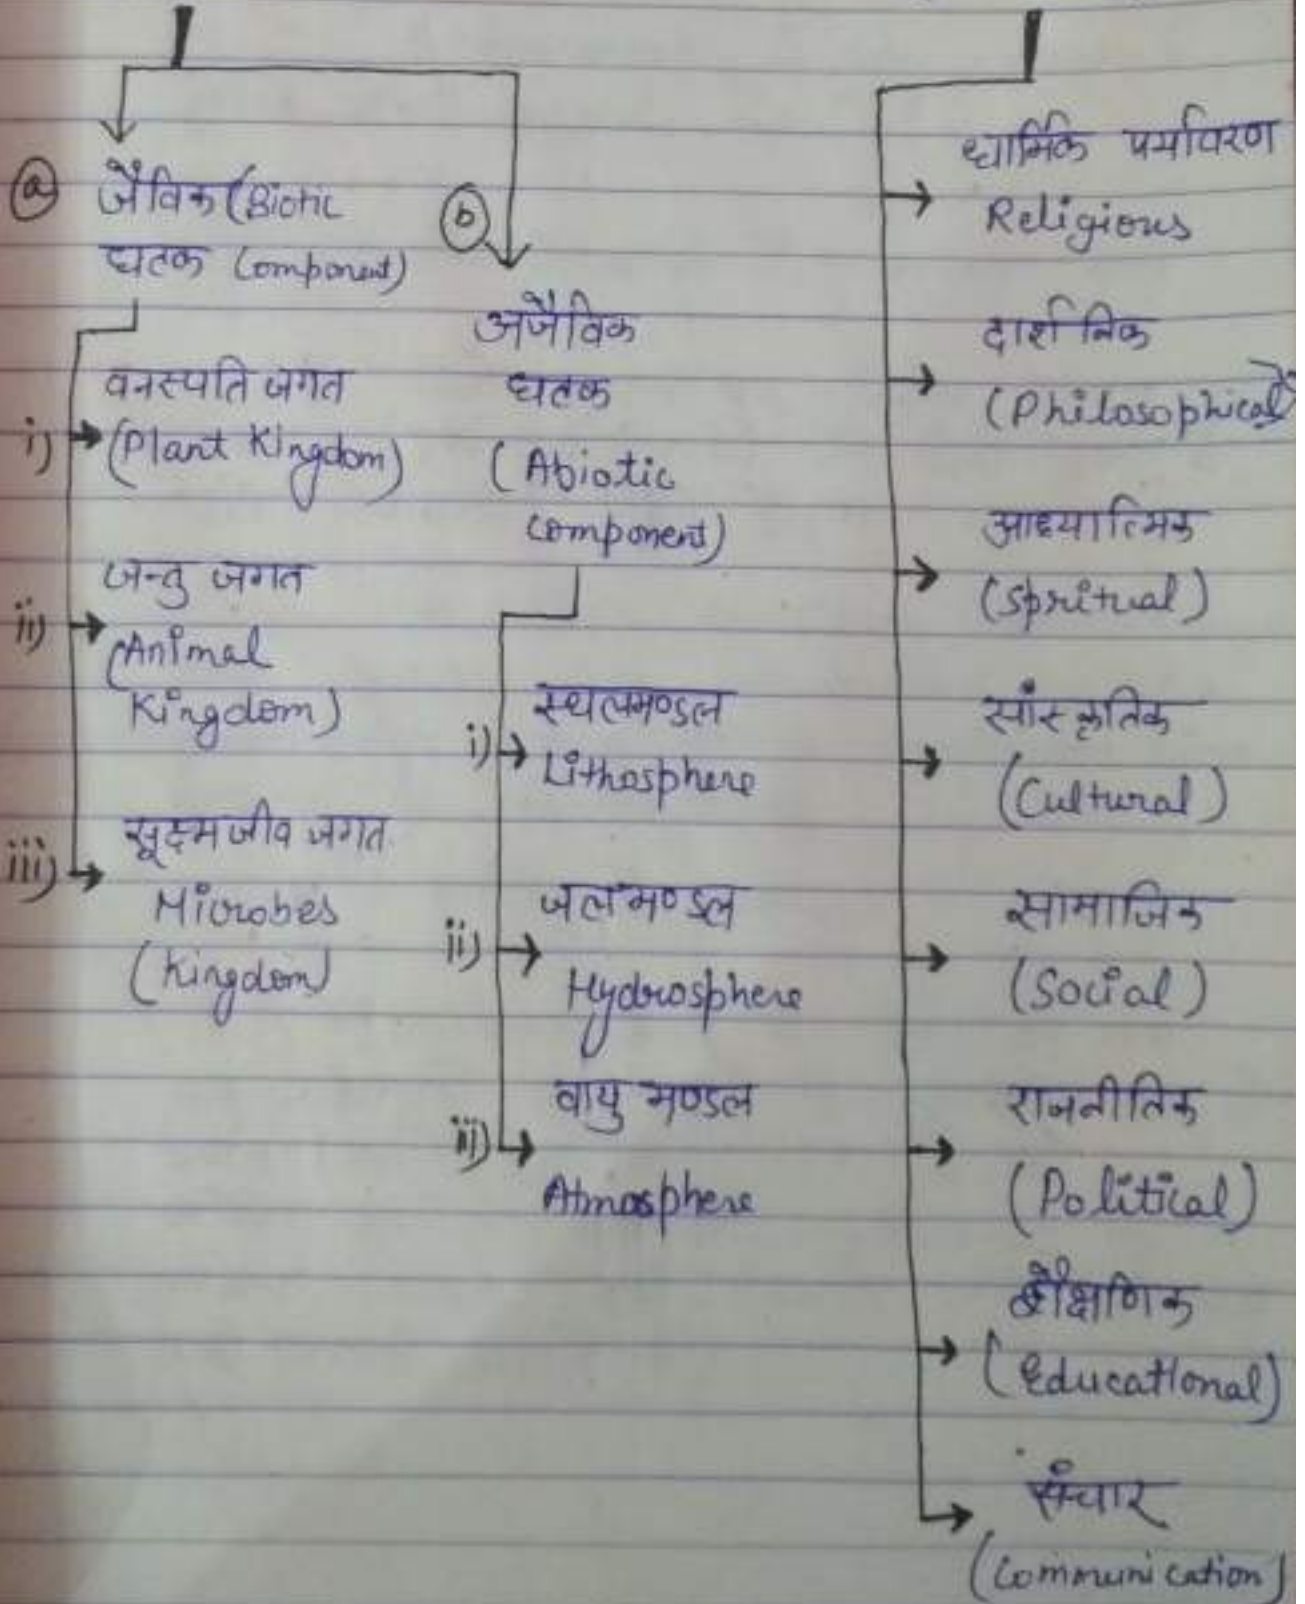 (a)
जैविक (Biotic
घटक Component)
i)
वनस्पति जगत
(Plant Kingdom)
ii)
जन्तु जगत
(Animal
Kingdom)
iii)
सूक्ष्म जीव जगत
Microbes
(Kingdom)
(b)
अजैविक
घटक
(Abiotic
Component)
i)
स्थलमण्डल
Lithosphere
ii)
जलमण्डल
Hydrosphere
iii)
वायु मण्डल
Atmosphere
धार्मिक पर्यावरण
Religious
दार्शनिक
(Philosophical)
आध्यात्मिक
(Spritual)
सांस्कृतिक
(Cultural)
सामाजिक
(Social)
राजनीतिक
(Political)
शैक्षणिक
(Educational)
संचार
(Communication)